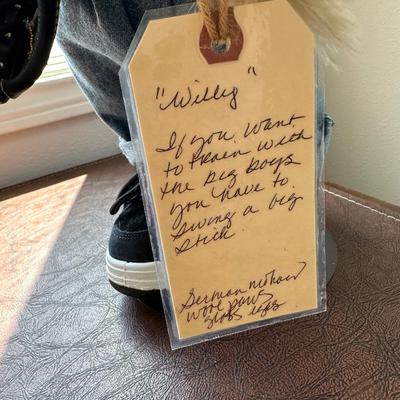 "Willy"
If you want
to train with
the big boys
you have to
swing a big
stick
German mohair
wool paws
glass eyes